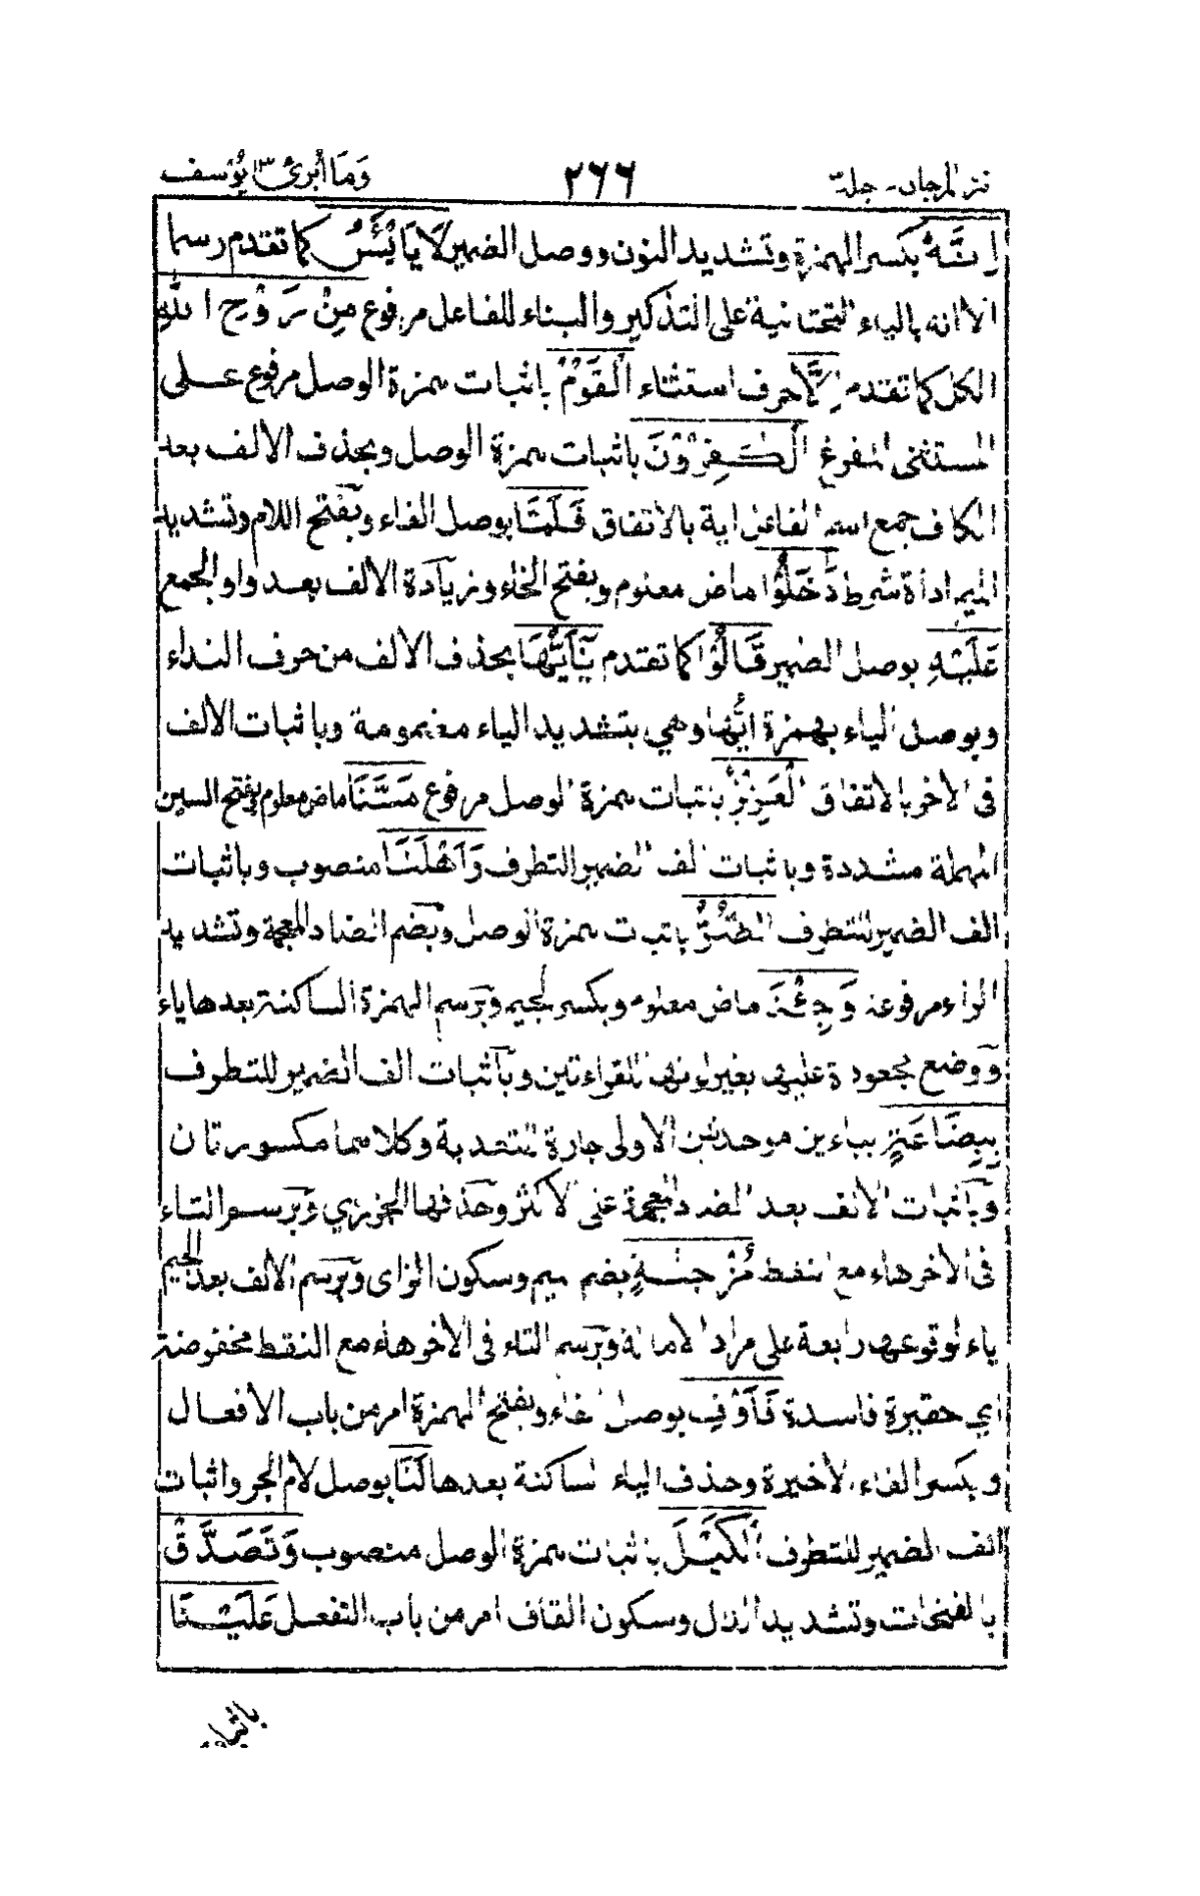 نثر المرجان - جلد ٣ ٢٦٦ وَمَا أُبَرِّئُ ١٣ يُوْسف
اِنَّهٗ بكسر الهمزة وتشديد النون ووصل الضمير لَا يَايْئَسُ كما تقدم رسما
الا انه بالياء التحتانية على التذكير والبناء للفاعل مرفوع مِنْ رَوْحِ اللهِ
الكل كما تقدم اِلَّا حرف استثناء الْقَوْمُ باثبات همزة الوصل مرفوع على
المستثنى المفرغ الْكٰفِرُوْنَ باثبات همزة الوصل وبحذف الالف بعد
الكاف جمع اسم الفاعل اية بالاتفاق فَلَمَّا بوصل الفاء وبفتح اللام وتشديد
الميم اداة شرط دَخَلُوْا ماض معلوم وبفتح الخاء وزيادة الالف بعد واو الجمع
عَلَيْهِ بوصل الضمير قَالُوْا كما تقدم يٰٓاَيُّهَا بحذف الالف من حرف النداء
وبوصل الياء بهمزة ايُّها وهي بتشديد الياء مضمومة وباثبات الالف
فى الاخر بالاتفاق الْعَزِيْزُ باثبات همزة الوصل مرفوع مَسَّنَا ماض معلوم بفتح السين
المهملة مشددة وباثبات الف الضمير للتطرف وَاَهْلَنَا منصوب وباثبات
الف الضمير للتطرف الضُّرُّ باثبات همزة الوصل وبضم الضاد المعجمة وتشديد
الراء مرفوعة وَجِئْنَا ماض معلوم وبكسر الجيم وبرسم الهمزة الساكنة بعدها ياء
ووضع مجعودة عليها بغير لونها للقراءتين وباثبات الف الضمير للتطرف
بِبِضَاعَةٍ بباءين موحدتين الاولى جارة للتعدية وكلاهما مكسورتان
وباثبات الالف بعد الضاد المعجمة على الاكثر وحذفها الجزري وبرسم التاء
فى الاخر هاء مع النقط مُزْجٰىةٍ بضم الميم وسكون الزاى وبرسم الالف بعد الجيم
ياء لوقوعها رابعة على مراد الامالة وبرسم التاء فى الاخر هاء مع النقط مخفوضة
اي حقيرة فاسدة فَاَوْفِ بوصل الفاء وبفتح الهمزة امر من باب الافعال
وبكسر الفاء الاخيرة وحذف الياء الساكنة بعدها لَنَا بوصل لام الجر واثبات
الف الضمير للتطرف الْكَيْلَ باثبات همزة الوصل منصوب وَتَصَدَّقْ
بالفتحات وتشديد الدال وسكون القاف امر من باب التفعل عَلَيْنَا
باثبات